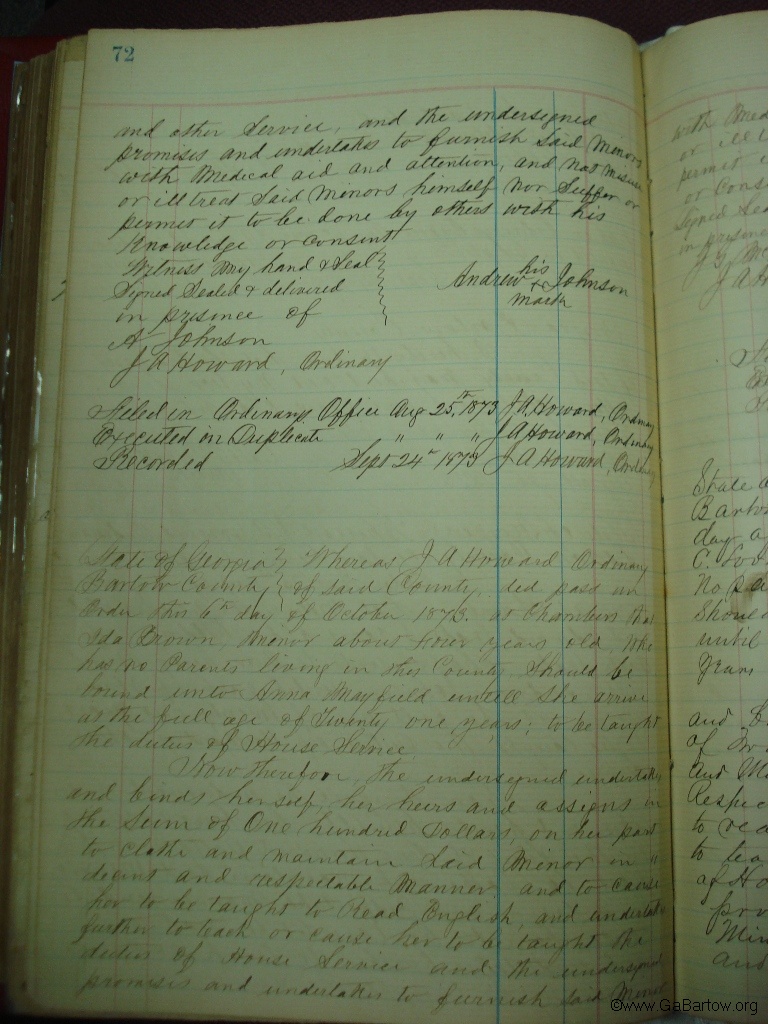 72
and other Service, and the undersigned
promises and undertakes to furnish Said Minors
with Medical aid and attention, and not misuse
or illtreat Said Minors himself nor Suffer or
permit it to be done by others with his
Knowledge or consent
Witness my hand & Seal
Signed Sealed & delivered
in presence of
Andrew his x mark Johnson
A Johnson
J A Howard, Ordinary
Filed in Ordinarys Office Aug 25th 1873 J A Howard, Ordinary
Executed in Duplicate " " " J A Howard, Ordinary
Recorded Sept 24th 1873 J A Howard, Ordinary
State of Georgia } Whereas J A Howard Ordinary
Bartow County } of said County, did pass an
Order this 6th day of October 1873. at Chambers that
Ida Brown, Minor about four years old, who
has no Parents living in this County Should be
bound unto Anna Mayfield untill She arrive
at the full age of Twenty one years; to be taught
the duties of House Service
Now therefor, the undersigned undertakes
and binds herself, her heirs and assigns in
the Sum of One hundred Dollars, on her part
to clothe and maintain Said Minor in a
decent and respectable Manner and to cause
her to be taught to Read English, and undertakes
further to teach or cause her to be taught the
duties of House Service and the undersigned
promises and undertakes to furnish Said Minor
with Med
or ill
permit i
or cons
Signed Sea
in presence
State o
Bartow
day o
No
Should
until
Years
and
of
and M
Respec
to
to tea
of Ho
pro
Min
and
©www.GaBartow.org